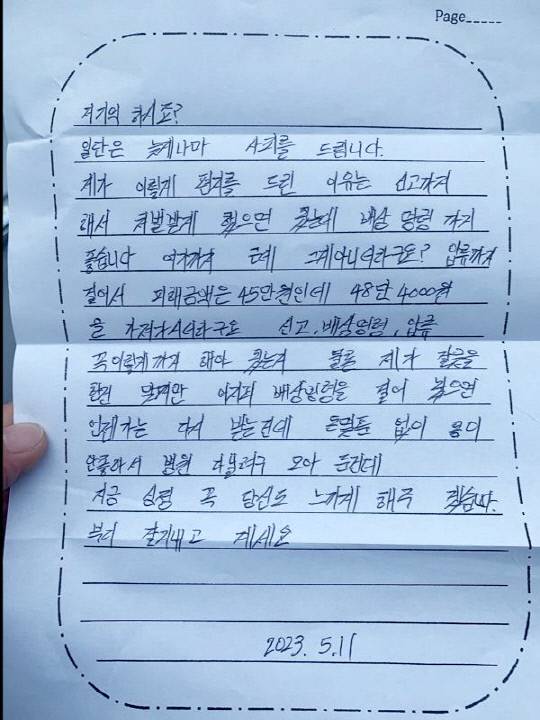 Page
저기억 하시죠?
일단은 늦게나마 사죄를 드립니다.
제가 이렇게 편지를 드린 이유는 신고까지
해서 처벌받게 했으면 됐는데 배상 명령 까지
좋습니다 여기까지 근데 그게아니더라구요? 압류까지
걸어서 피해금액은 45만원인데 48만 4000원
을 가져가시더라구요 신고, 배상명령, 압류
꼭이렇게 까지 해야 됐는지 물론 제가 잘못을
한건 맞지만 어차피 배상명령을 걸어 놨으면
언젠가는 다시 받는건데 돈몇푼 없이
모아 둔건데
지금 심정 꼭 당신도 느끼게 해주 겠습니다.
부디 잘지내고 계세요
2023. 5. 11